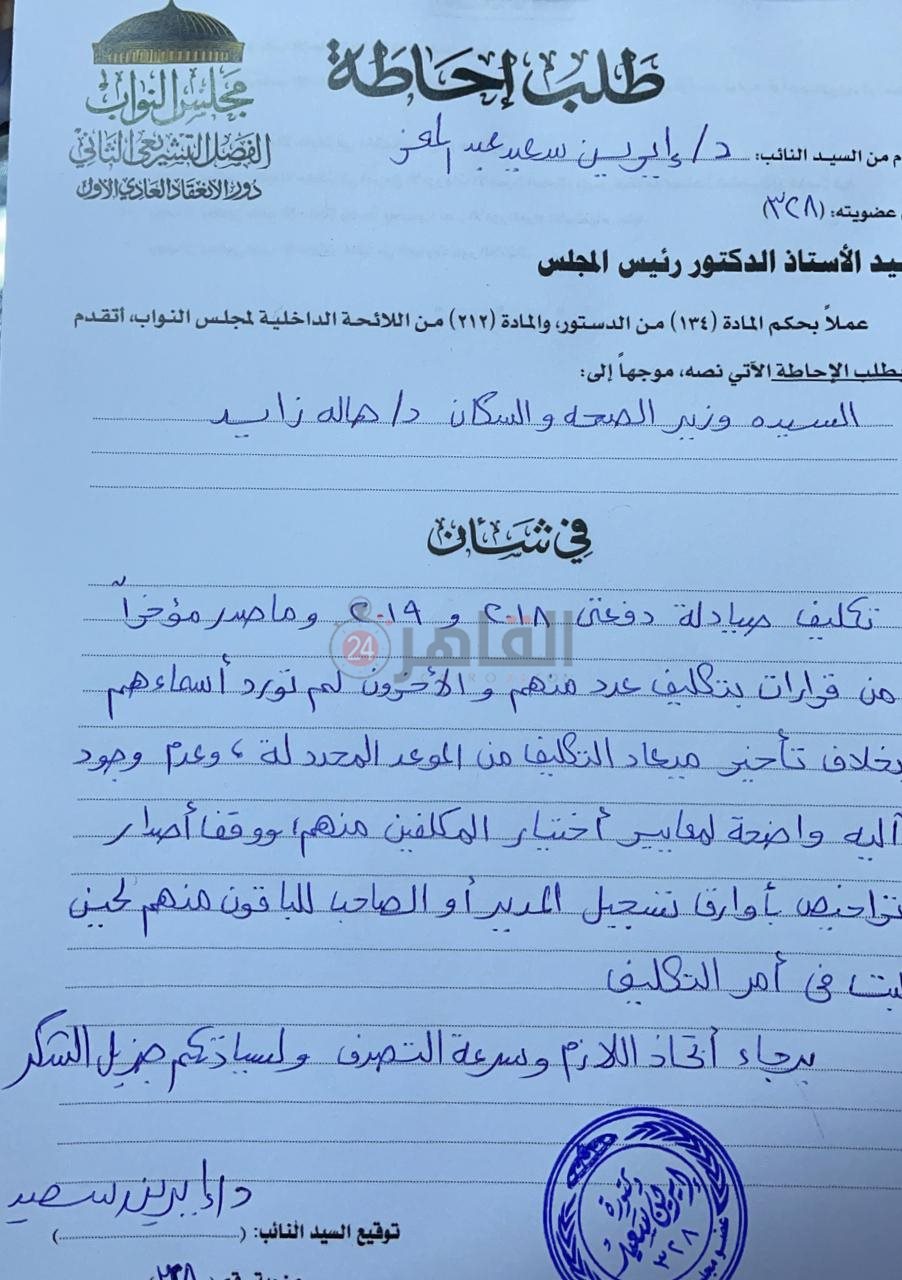 مجلس النواب
الفصل التشريعى الثانى
دور الانعقاد العادى الأول
طلب إحاطة
م من السيد النائب: د/ إيرين سعيد عبد المعز
عضويته: (٣٢٨)
يد الأستاذ الدكتور رئيس المجلس
عملاً بحكم المادة (١٣٤) من الدستور، والمادة (٢١٢) من اللائحة الداخلية لمجلس النواب، أتقدم
بطلب الإحاطة الآتي نصه، موجهاً إلى:
السيده وزير الصحه والسكان د/ هاله زايد
في شأن
تكليف صيادلة دفعتى ٢٠١٨ و ٢٠١٩ وماصدر مؤخراً
القاهرة 24
من قرارات بتكليف عدد منهم والأخرون لم تورد أسماءهم
بخلاف تأخير ميعاد التكليف من الموعد المحدد لة، وعدم وجود
آليه واضحة لمعايير أختيار المكلفين منهم، ووقف أصدار
تراخيص بأوارق تسجيل المدير أو الصاحب للباقون منهم لحين
لبت فى أمر التكليف
برجاء أتخاذ اللازم وسرعة التصرف ولسيادتكم جزيل الشكر
د/ إيرين سعيد
توقيع السيد النائب: (
دكتورة
إيرين سعيد
٣٢٨